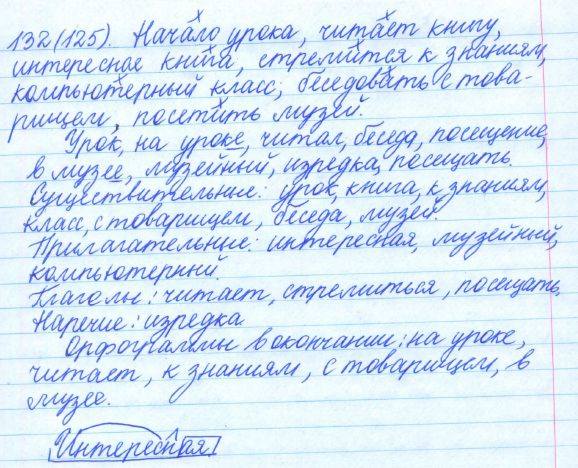 132(125). Начало урока, читает книгу,
интересная книга, стремится к знаниям,
компьютерный класс, беседовать с това-
рищем, посетить музей.
Урок, на уроке, читал, беседа, посещение,
в музее, музейный, изредка, посещать.
Существительные: урок, книга, к знаниям,
класс, с товарищем, беседа, музей.
Прилагательные: интересная, музейный,
компьютерный.
Глаголы: читает, стремиться, посещать.
Наречие: изредка.
Орфограммы в окончании: на уроке,
читает, к знаниям, с товарищем, в
музее.
Интересная